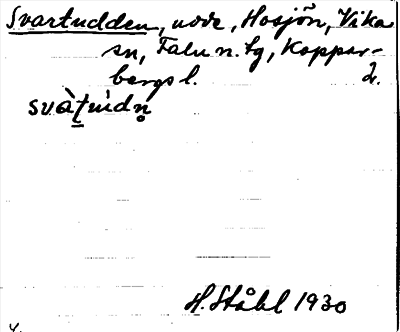 Svartudden, udde, Hosjön, Vika
sn, Falu n. tg, Koppar-
bergs l.
svàṯúdn̥
H. Ståhl 1930